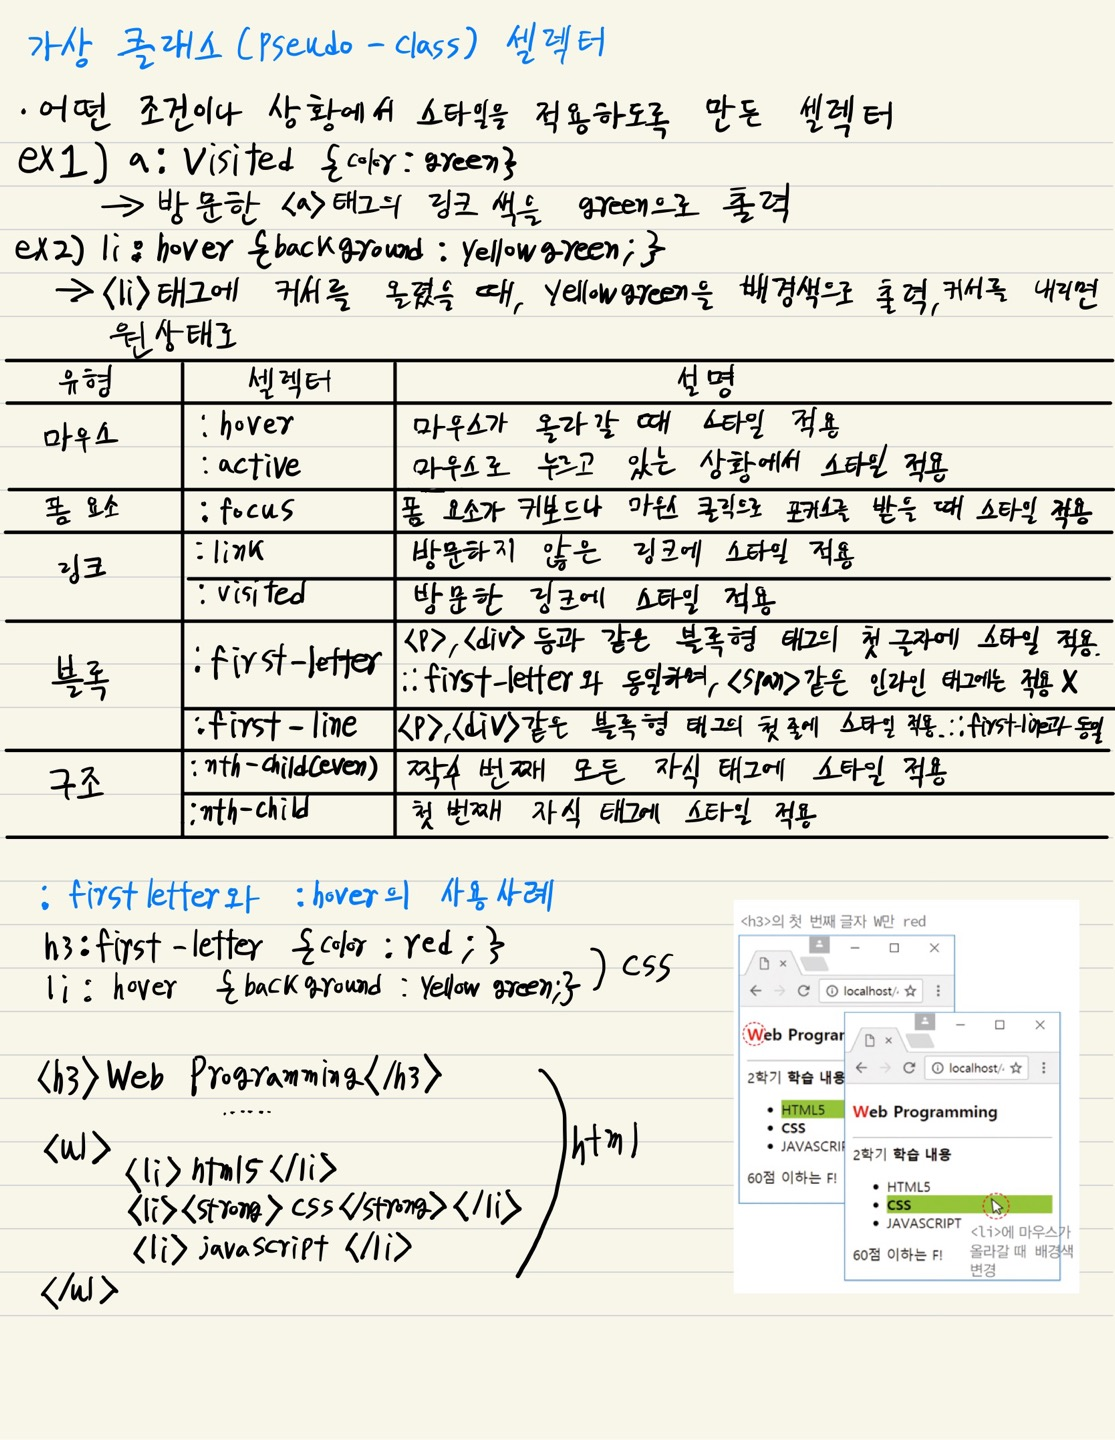 가상 클래스(Pseudo-class) 셀렉터
· 어떤 조건이나 상황에서 스타일을 적용하도록 만든 셀렉터
ex1) a: visited {color: green}
→ 방문한 <a>태그의 링크 색을 green으로 출력
ex2) li: hover {background: yellowgreen; }
→ <li>태그에 커서를 올렸을 때, yellowgreen을 배경색으로 출력, 커서를 내리면
원상태로
유형 셀렉터 설명
마우스 :hover 마우스가 올라갈 때 스타일 적용
:active 마우스로 누르고 있는 상황에서 스타일 적용
폼 요소 :focus 폼 요소가 키보드나 마우스 클릭으로 포커스를 받을 때 스타일 적용
링크 :link 방문하지 않은 링크에 스타일 적용
:visited 방문한 링크에 스타일 적용
블록 :first-letter <p>,<div> 등과 같은 블록형 태그의 첫 글자에 스타일 적용.
::first-letter와 동일하며, <span>같은 인라인 태그에는 적용 X
:first-line <p>,<div>같은 블록형 태그의 첫 줄에 스타일 적용. ::first-line과 동일
구조 :nth-child(even) 짝수 번째 모든 자식 태그에 스타일 적용
:nth-child 첫 번째 자식 태그에 스타일 적용
: first letter와 :hover의 사용사례
h3:first-letter {color: red; }
li: hover {background: yellow green;}
) CSS
<h3>Web Programming</h3>
......
<ul>
<li> html5 </li>
<li><strong> css </strong></li>
<li> javascript </li>
</ul>
html
<h3>의 첫 번째 글자 W만 red
localhost/
Web Program
2학기 학습 내용
HTML5
CSS
JAVASCRI
60점 이하는 F!
localhost/
Web Programming
2학기 학습 내용
HTML5
CSS
JAVASCRIPT
60점 이하는 F!
<li>에 마우스가
올라갈 때 배경색
변경